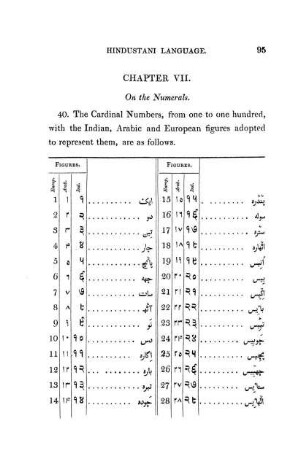 HINDUSTANI LANGUAGE. 95
CHAPTER VII.
On the Numerals.
40. The Cardinal Numbers, from one to one hundred,
with the Indian, Arabic and European figures adopted
to represent them, are as follows.
FIGURES. FIGURES.
Europ. Arab. Ind. Europ. Arab. Ind.
1 ١ १ .......... ایک 15 ١٥ १५ .......... پندره
2 ٢ २ .......... دو 16 ١٦ १६ .......... سوله
3 ٣ ३ .......... تین 17 ١٧ १७ .......... ستره
4 ۴ ४ .......... چار 18 ١٨ १८ .......... اٹهاره
5 ٥ ५ .......... پانچ 19 ١٩ १९ .......... انیس
6 ٦ ६ .......... چهه 20 ٢٠ २० .......... بیس
7 ٧ ७ .......... سات 21 ٢١ २१ .......... اکیس
8 ٨ ८ .......... آٹهه 22 ٢٢ २२ .......... بائیس
9 ٩ ९ .......... نو 23 ٢٣ २३ .......... تیئیس
10 ١٠ १० .......... دس 24 ٢۴ २४ .......... چوبیس
11 ١١ ११ .......... اگاره 25 ٢٥ २५ .......... پچیس
12 ١٢ १२ .......... باره 26 ٢٦ २६ .......... چهبیس
13 ١٣ १३ .......... تیره 27 ٢٧ २७ .......... ستائیس
14 ١۴ १४ .......... چوده 28 ٢٨ २८ .......... اٹهائیس